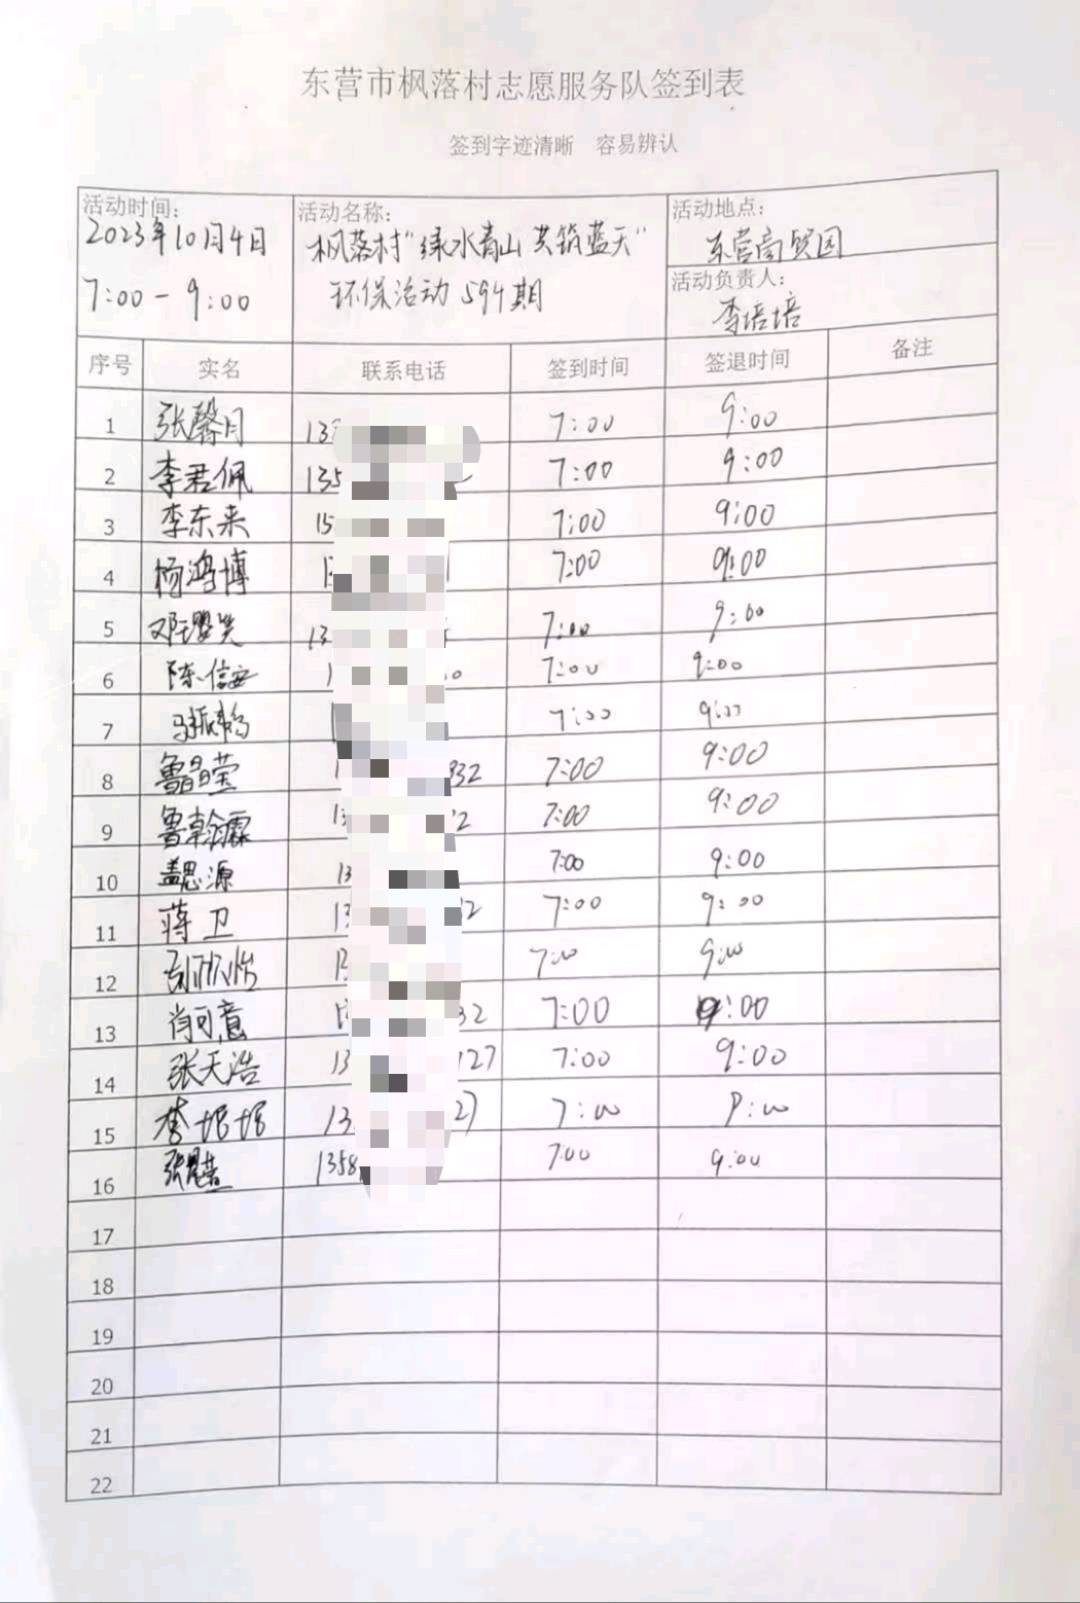 东营市枫落村志愿服务队签到表
签到字迹清晰 容易辨认
活动时间：
2023年10月4日
7:00-9:00
活动名称：
枫落村“绿水青山 共筑蓝天”
环保活动594期
活动地点：
东营商贸园
活动负责人：
李培培
序号 实名 联系电话 签到时间 签退时间 备注
1 张馨月 13 7:00 9:00
2 李君佩 135 7:00 9:00
3 李东来 15 7:00 9:00
4 杨鸿博 7:00 9:00
5 13 7:00 9:00
6 陈信安 1 7:00 9:00
7 7:00 9:00
8 鲁晶莹 1 832 7:00 9:00
9 鲁翰霖 13 2 7:00 9:00
10 盖思源 13 7:00 9:00
11 蒋卫 13 2 7:00 9:00
12 刘欣怡 7:00 9:00
13 肖可意 32 7:00 9:00
14 张天浩 13 127 7:00 9:00
15 李培培 13 27 7:00 9:00
16 1358 7:00 9:00
17
18
19
20
21
22